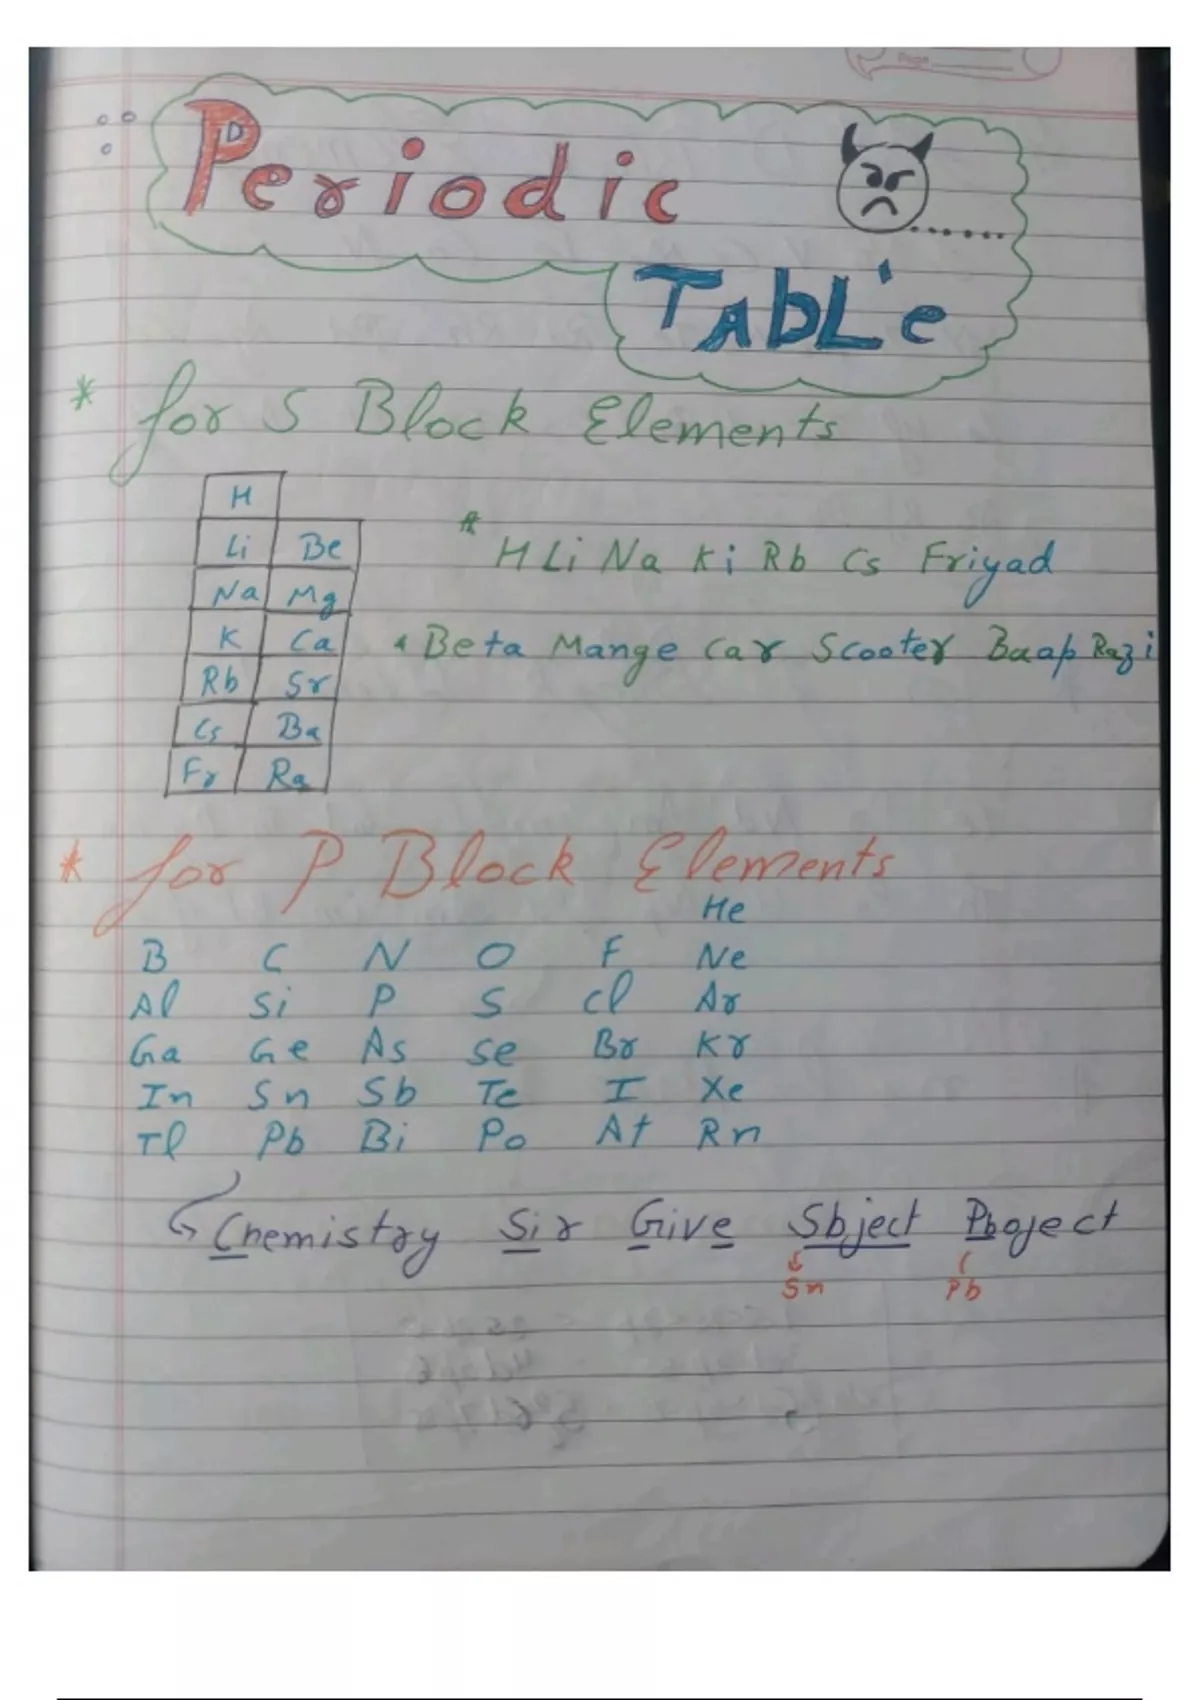 Page
Periodic
TAbLe
* for S Block Elements
H
Li Be
Na Mg
K Ca
Rb Sr
Cs Ba
Fr Ra
* H Li Na Ki Rb Cs Friyad
* Beta Mange Car Scooter Baap Razi
* for P Block Elements
He
B C N O F Ne
Al Si P S Cl Ar
Ga Ge As Se Br Kr
In Sn Sb Te I Xe
Tl Pb Bi Po At Rn
Chemistry Sir Give Sbject Pboject
Sn Pb